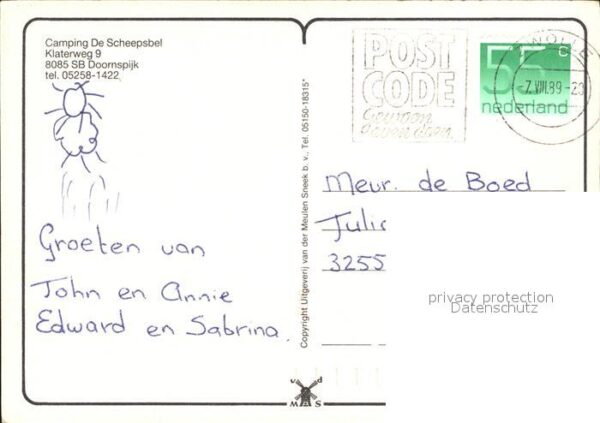 Camping De Scheepsbel
Klaterweg 9
8085 SB Doornspijk
tel. 05258-1422
POST
CODE
Gewoon
even doen.
ZWOLLE
-7.VIII.89-20
55c
nederland
Groeten van
John en Annie
Edward en Sabrina.
Copyright Uitgeverij van der Meulen Sneek b. v., Tel. 05150-18315*
Meur. de Boed
3255
privacy protection
Datenschutz
v d
M S